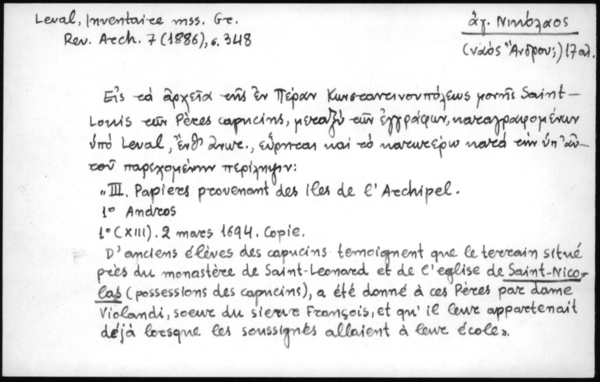 Leval, Inventaire mss. Gr.
Rev. Arch. 7 (1886), σ. 348
ἁγ. Νικόλαος
(ναὸς Ἄνδρου;) 17 αἰ.
Εἰς τὰ ἀρχεῖα τῆς ἐν Πέραν Κωνσταντινουπόλεως μονῆς Saint-
Louis τῶν Pères capucins, μεταξὺ τῶν ἐγγράφων, καταγραφομένων
ὑπὸ Leval, ἔνθ' ἀνωτ., εὕρηται καὶ τὸ κατωτέρω κατὰ τὴν ὑπ' αὐ-
τοῦ παρεχομένην περίληψιν:
"III. Papiers provenant des îles de l'Archipel.
1º Andros
1º (XIII). 2 mars 1694. Copie.
D'anciens élèves des capucins temoignent que le terrain situé
près du monastère de Saint-Leonard et de l'eglise de Saint-Nico-
las (possessions des capucins), a été donné à ces Pères par dame
Violandi, soeur du sieur François, et qu'il leur appartenait
déjà lorsque les soussignés allaient à leur école".